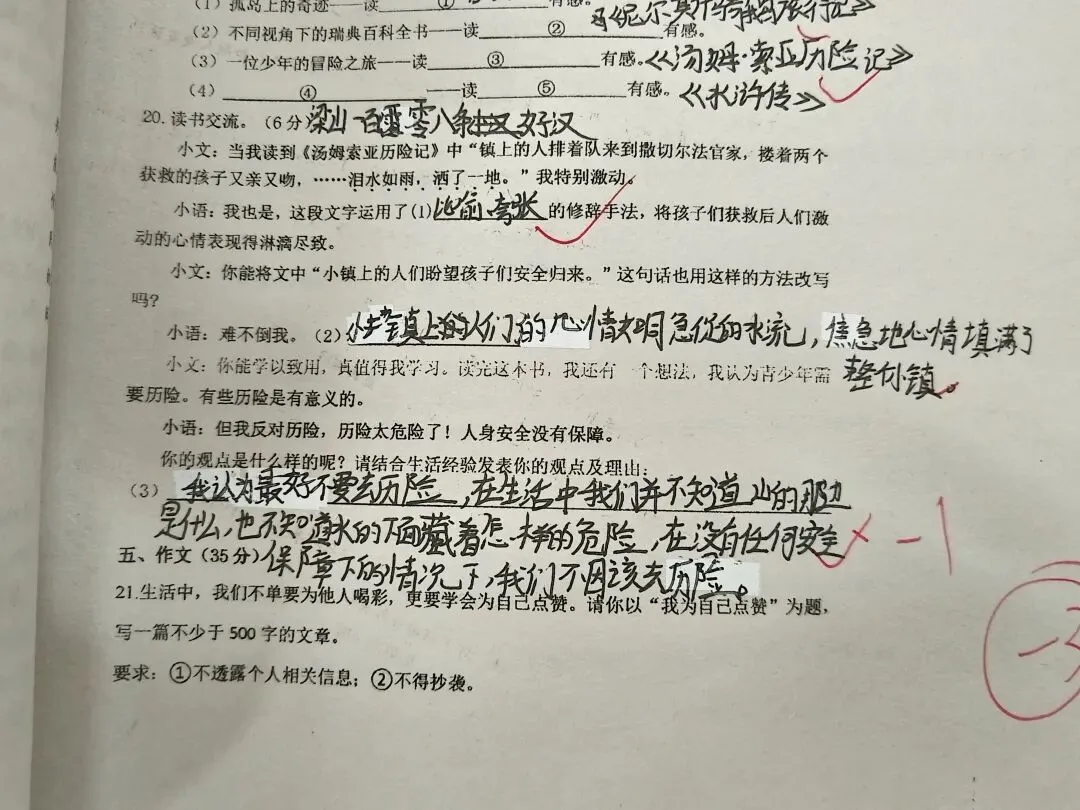 (1) 孤岛上的奇迹——读 ① 有感。
《尼尔斯骑鹅旅行记》
(2) 不同视角下的瑞典百科全书——读 ② 有感。
(3) 一位少年的冒险之旅——读 ③ 有感。《汤姆·索亚历险记》
(4) ④ ——读 ⑤ 有感。《水浒传》
20. 读书交流。(6分) 梁山一百零八条好汉
小文：当我读到《汤姆索亚历险记》中“镇上的人排着队来到撒切尔法官家，搂着两个
获救的孩子又亲又吻，……泪水如雨，洒了一地。”我特别激动。
小语：我也是，这段文字运用了(1)比喻、夸张的修辞手法，将孩子们获救后人们激
动的心情表现得淋漓尽致。
小文：你能将文中“小镇上的人们盼望孩子们安全归来。”这句话也用这样的方法改写
吗？
小语：难不倒我。(2) 镇上的人们的心情如同急促的水流，焦急地心情填满了
小文：你能学以致用，真值得我学习。读完这本书，我还有一个想法，我认为青少年需
整个镇。
要历险。有些历险是有意义的。
小语：但我反对历险，历险太危险了！人身安全没有保障。
你的观点是什么样的呢？请结合生活经验发表你的观点及理由：
(3) 我认为最好不要去历险，在生活中我们并不知道山的那边
是什么，也不知道水的下面藏着怎样的危险，在没有任何安全
× -1
五、作文(35分) 保障下的情况下，我们不因该去历险。
21.生活中，我们不单要为他人喝彩，更要学会为自己点赞。请你以“我为自己点赞”为题，
写一篇不少于500字的文章。
-3
要求：①不透露个人相关信息；②不得抄袭。